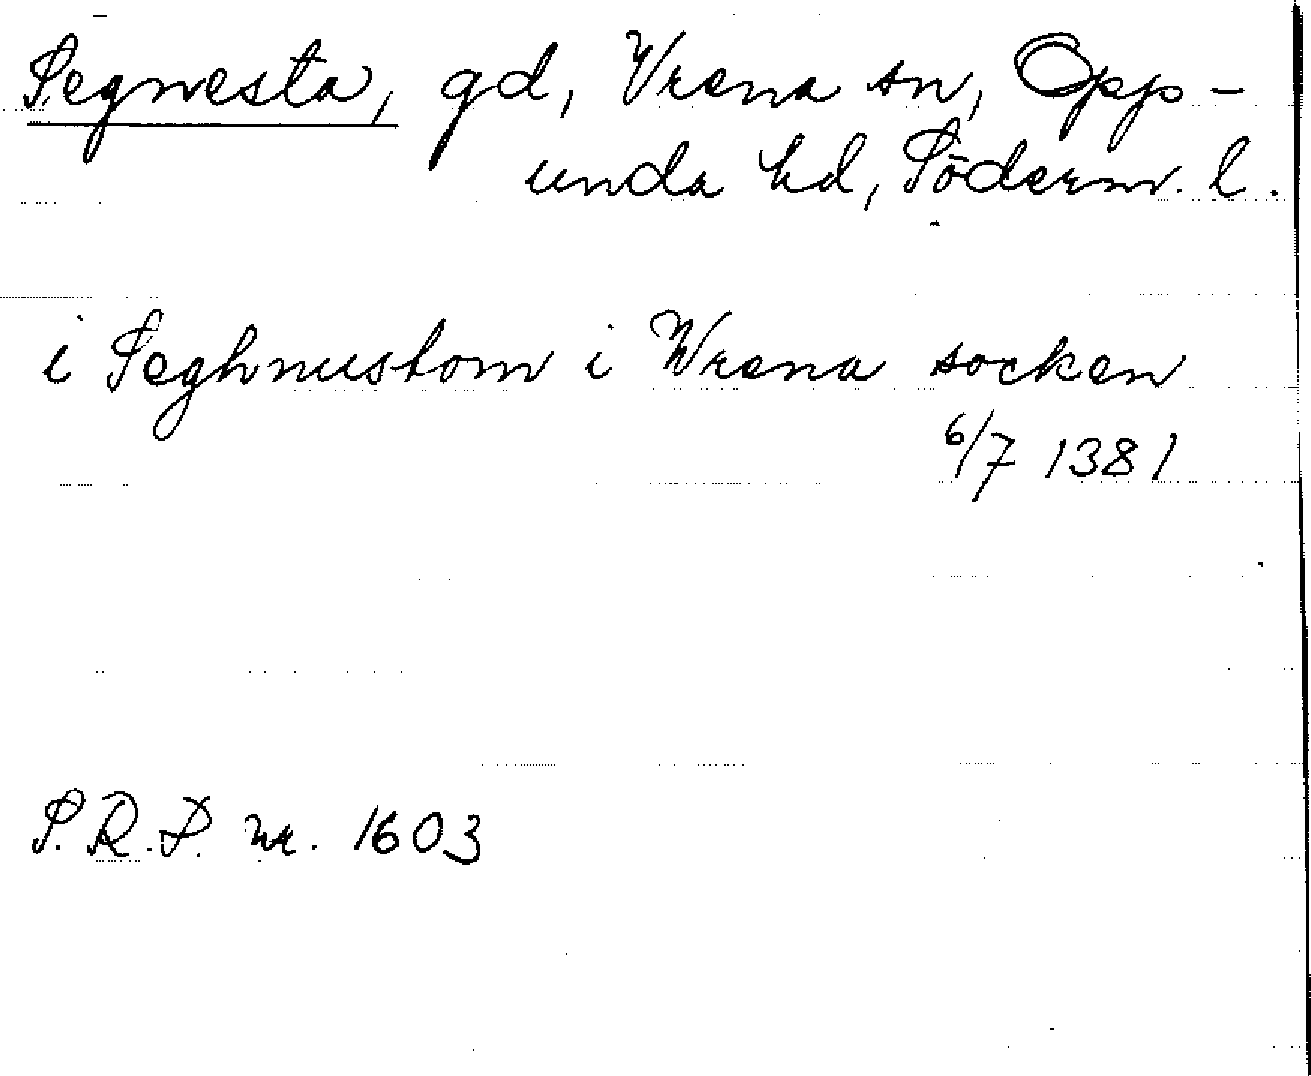 Segnesta, gd, Vrena sn, Opp-
unda hd, Söderm. l.
i Seghnustom i Wrena socken
6/7 1381
S.R.P. nr. 1603